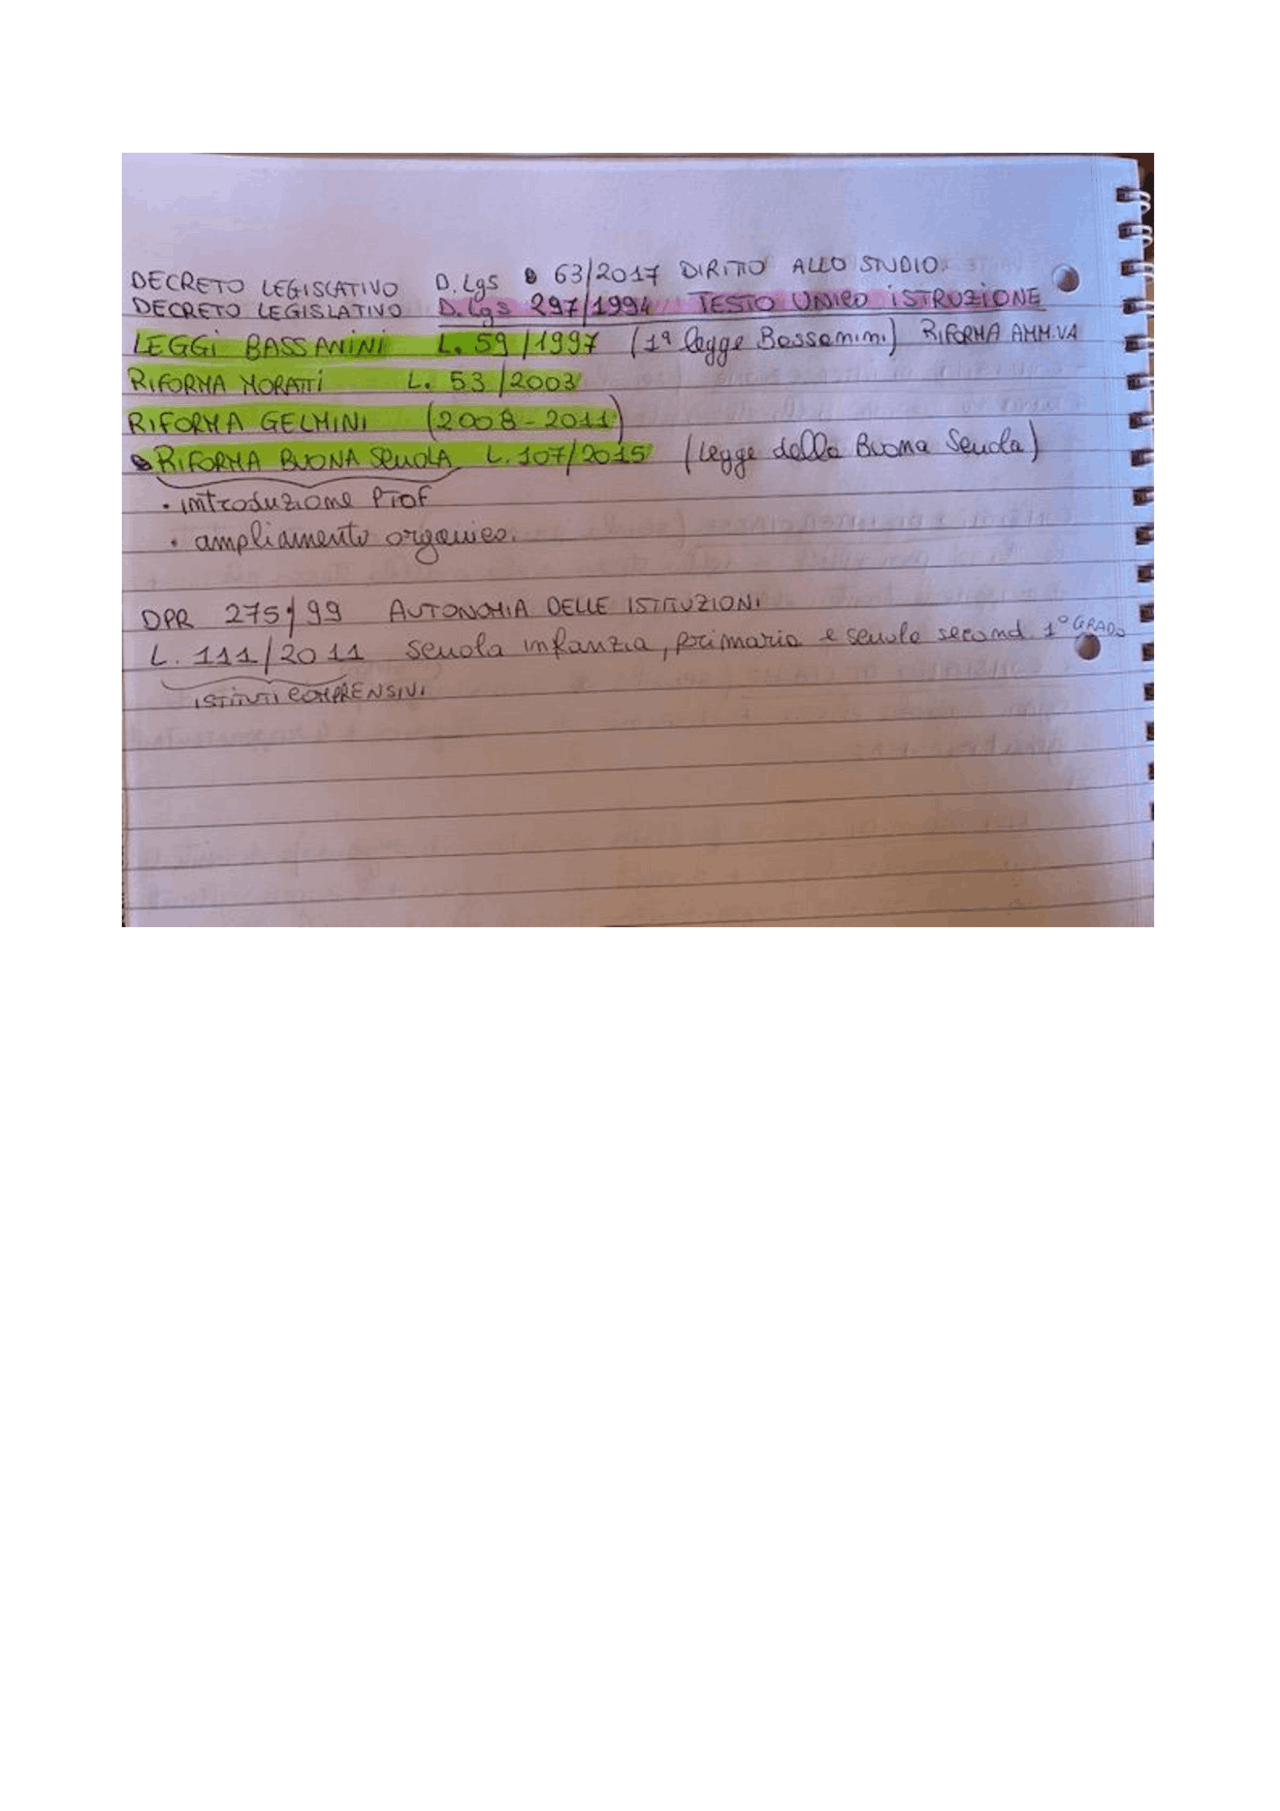 DECRETO LEGISLATIVO D.Lgs 63/2017 DIRITTO ALLO STUDIO
DECRETO LEGISLATIVO D.Lgs 297/1994 TESTO UNICO ISTRUZIONE
LEGGI BASSANINI L. 59/1997 (1ª legge Bassanini) RIFORMA AMM.VA
RIFORMA MORATTI L. 53/2003
RIFORMA GELMINI (2008-2011)
RIFORMA BUONA SCUOLA L. 107/2015 (Legge della Buona Scuola)
• introduzione Ptof
• ampliamento organico.
DPR 275/99 AUTONOMIA DELLE ISTITUZIONI
L. 111/2011 scuola infanzia, primaria e scuole second. 1° GRADO
ISTITUTI COMPRENSIVI